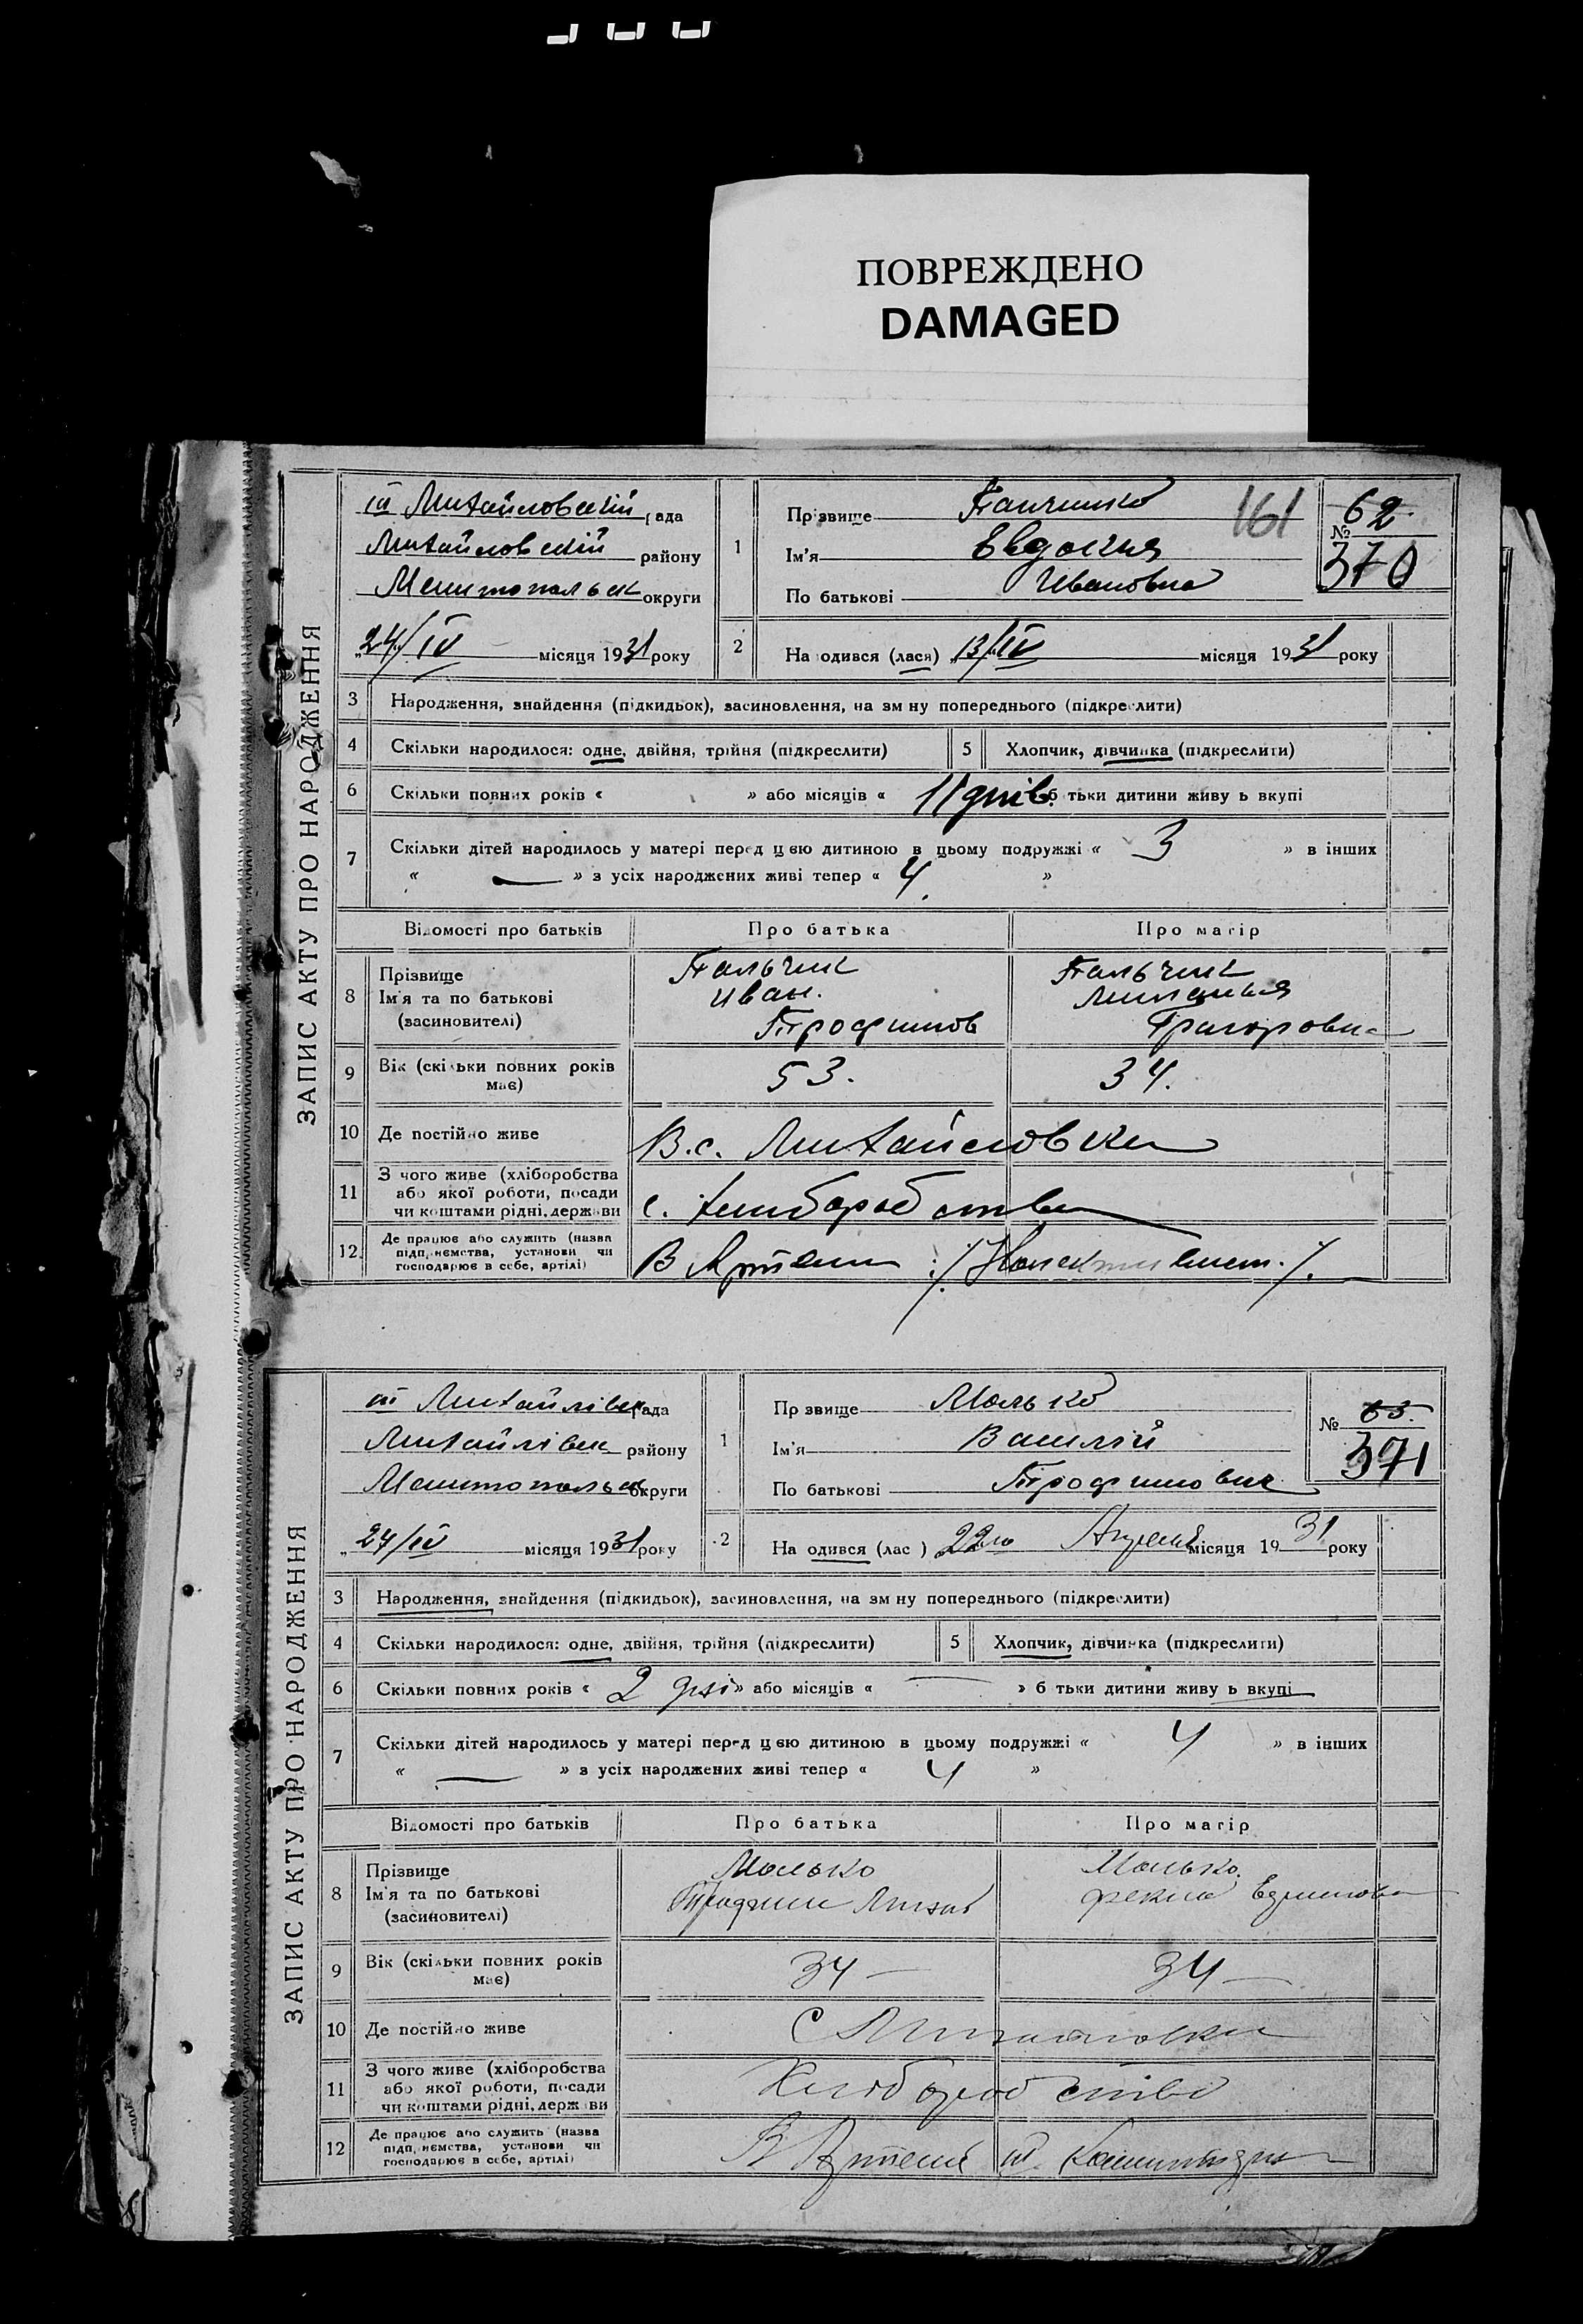 ПОВРЕЖДЕНО
DAMAGED
ЗАПИС АКТУ ПРО НАРОДЖЕННЯ
III Михайловский рада
Михайловский району
Мелитопольск округи
„24/IV місяця 1931 року
1
Прізвище
Ім'я Евдокия
По батькові Ивановна
161
62.
№
370
2
На одився (лася) „13/IV місяця 1931 року
3 Народження, знайдення (підкидьок), засиновлення, на зм ну попереднього (підкреслити)
4 Скільки народилося: одне, двійня, трійня (підкреслити) 5 Хлопчик, дівчинка (підкреслити)
6 Скільки повних років « » або місяців « 11 днів. б тьки дитини живу ь вкупі
7 Скільки дітей народилось у матері перед цею дитиною в цьому подружжі « 3 » в інших
« — » з усіх народжених живі тепер « 4. »
Відомості про батьків Про батька Про матір
8 Прізвище
Ім'я та по батькові
(засиновителі)
Пальчик
Иван.
Трофимов
Пальчик
Григоровна
9 Вік (скільки повних років
має)
53. 34.
10 Де постійно живе В.с. Михайловка
11 З чого живе (хліборобства
або якої роботи, посади
чи коштами рідні, держави
с. хлиборобства
12. Де працює або служить (назва
підприємства, установи чи
господарює в себе, артілі)
В Артели
ЗАПИС АКТУ ПРО НАРОДЖЕННЯ
III Михайлівск рада
Михайлівск району
Мелитопольск округи
„24/IV місяця 1931 року
1
Пр звище Малько
Ім'я Василий
По батькові Трофимович
№ 63.
371
2
На одився (лас ) 22го Апреля місяця 1931 року
3 Народження, знайдення (підкидьок), засиновлення, на зм ну попереднього (підкреслити)
4 Скільки народилося: одне, двійня, трійня (підкреслити) 5 Хлопчик, дівчинка (підкреслити)
6 Скільки повних років « 2 дні » або місяців « — » б тьки дитини живу ь вкупі
7 Скільки дітей народилось у матері перед цею дитиною в цьому подружжі « 4 » в інших
« — » з усіх народжених живі тепер « 4 »
Відомості про батьків Про батька Про матір
8 Прізвище
Ім'я та по батькові
(засиновителі)
Малько
Трофим
Малько.
Фекла
9 Вік (скільки повних років
має)
34 — 34 —
10 Де постійно живе С Михайловка
11 З чого живе (хліборобства
або якої роботи, посади
чи коштами рідні, держави
Хлоборобство
12 Де працює або служить (назва
підприємства, установи чи
господарює в себе, артілі)
В Артели